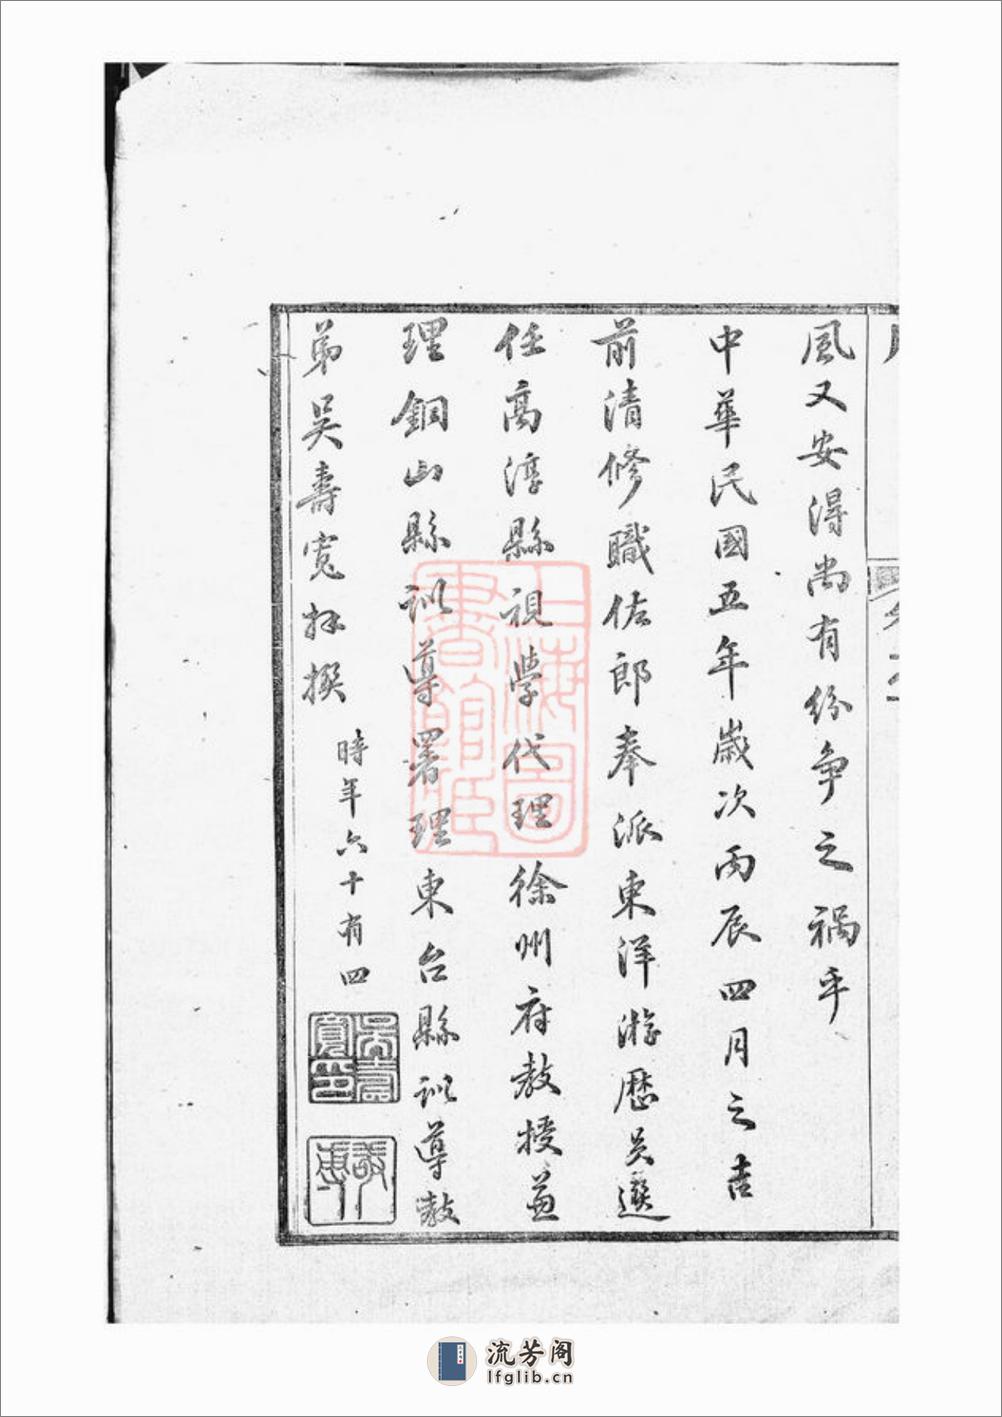 風又安得尚有紛争之禍乎
中華民國五年歲次丙辰四月之吉
前清修職佐郎奉派東洋游歷員選
任高淳縣視學代理徐州府教授兼
理銅山縣訓導署理東台縣訓導教
弟吳壽寬拜撰
時年六十有四
吳壽寬印
上海圖書館藏
流芳阁
lfglib.cn